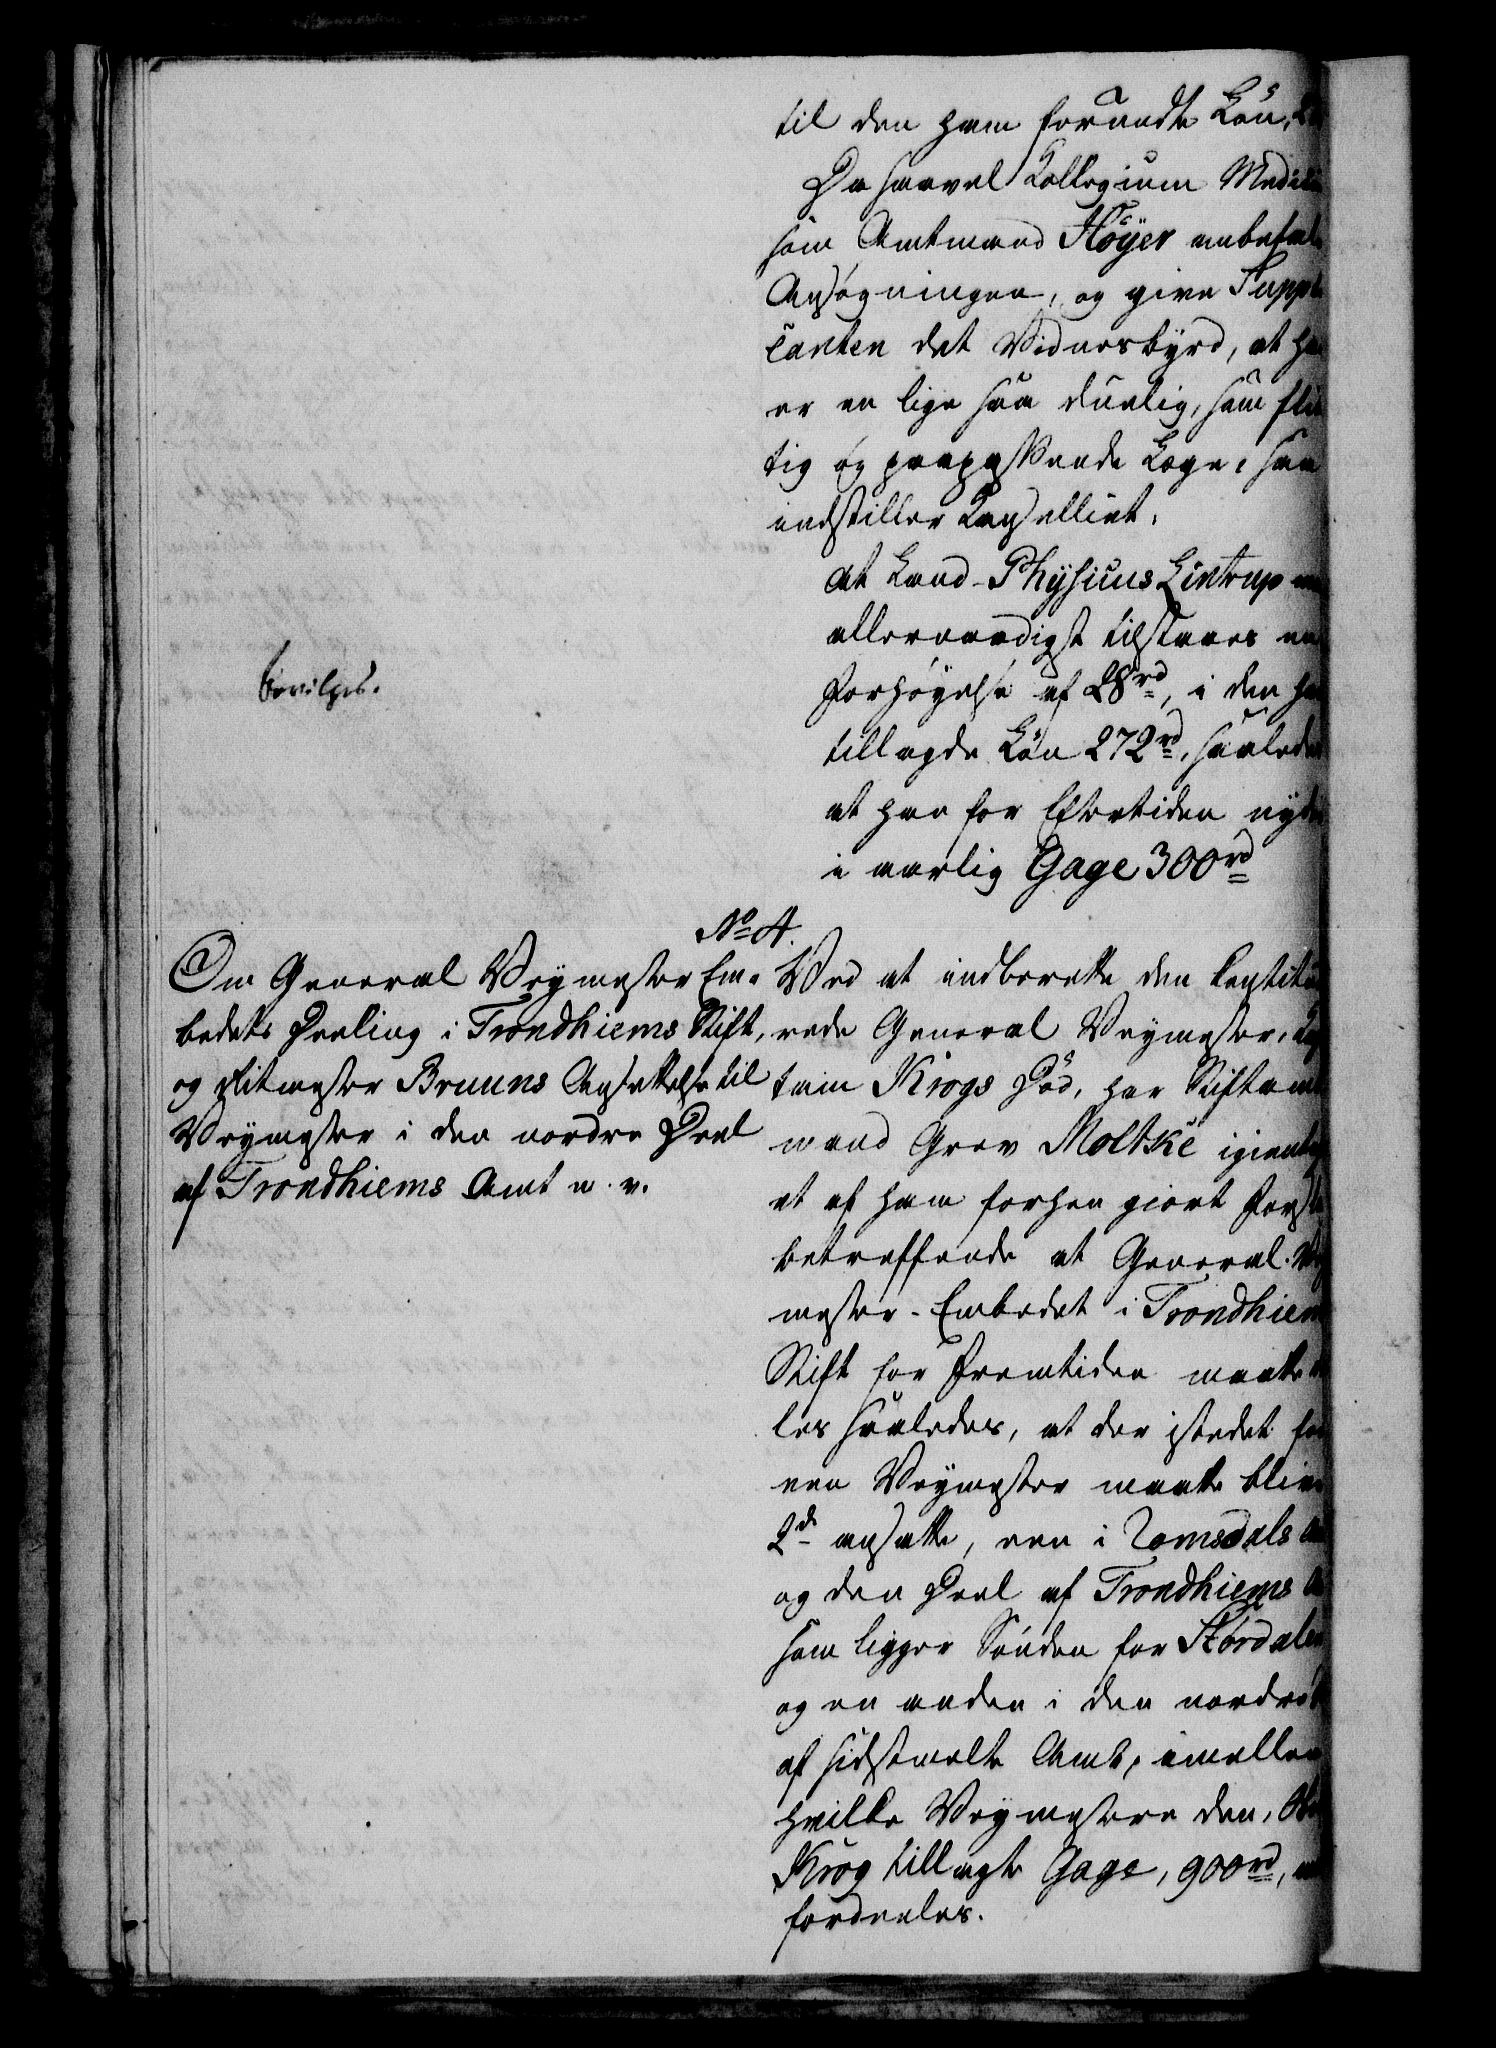 til den ham forundte Løn,
Da saavel Collegium Medicum
som Amtmand Höyer anbefale
Ansøgningen, og give Suppli
canten det Vidnesbyrd, at han
er en lige saa duelig, som flit
tig og paapassende Læge, saa
indstiller Cancelliet,
at Land-Physicus Lintrup maa
allernaadigst tilstaaes en
Forhøyelse af 28 rd, i den ham
tillagde Løn 272 rd, saaledes
at han for Eftertiden nyder
i aarlig Gage 300 rd
bevilges.
No 4.
Om General Veymester Em-
bedets Deeling i Trondhiems Stift,
og Ritmester Bruuns Ansættelse til
Veymester i den nordre Deel
af Trondhiems Amt m. v.
Ved at indberette den constitue
rede General Veymester, Cap
tain Krogs Død, har Stiftamt
mand Grev Moltke igientaget
et af ham forhen giort Forslag
betreffende at General-Vey
mester-Embedet i Trondhiems
Stift for Fremtiden maatte dee
les saaledes, at der istedet for
een Veymester maatte blive
2de ansatte, een i Romsdals Amt
og den Deel af Trondhiems Amt
som ligger Sønden for Størdalen
og en anden i den nordre Deel
af sidstmelte Amt, imellem
hvilke Veymestere den,
Krog tillagte Gage, 900 rd,
fordeeles.